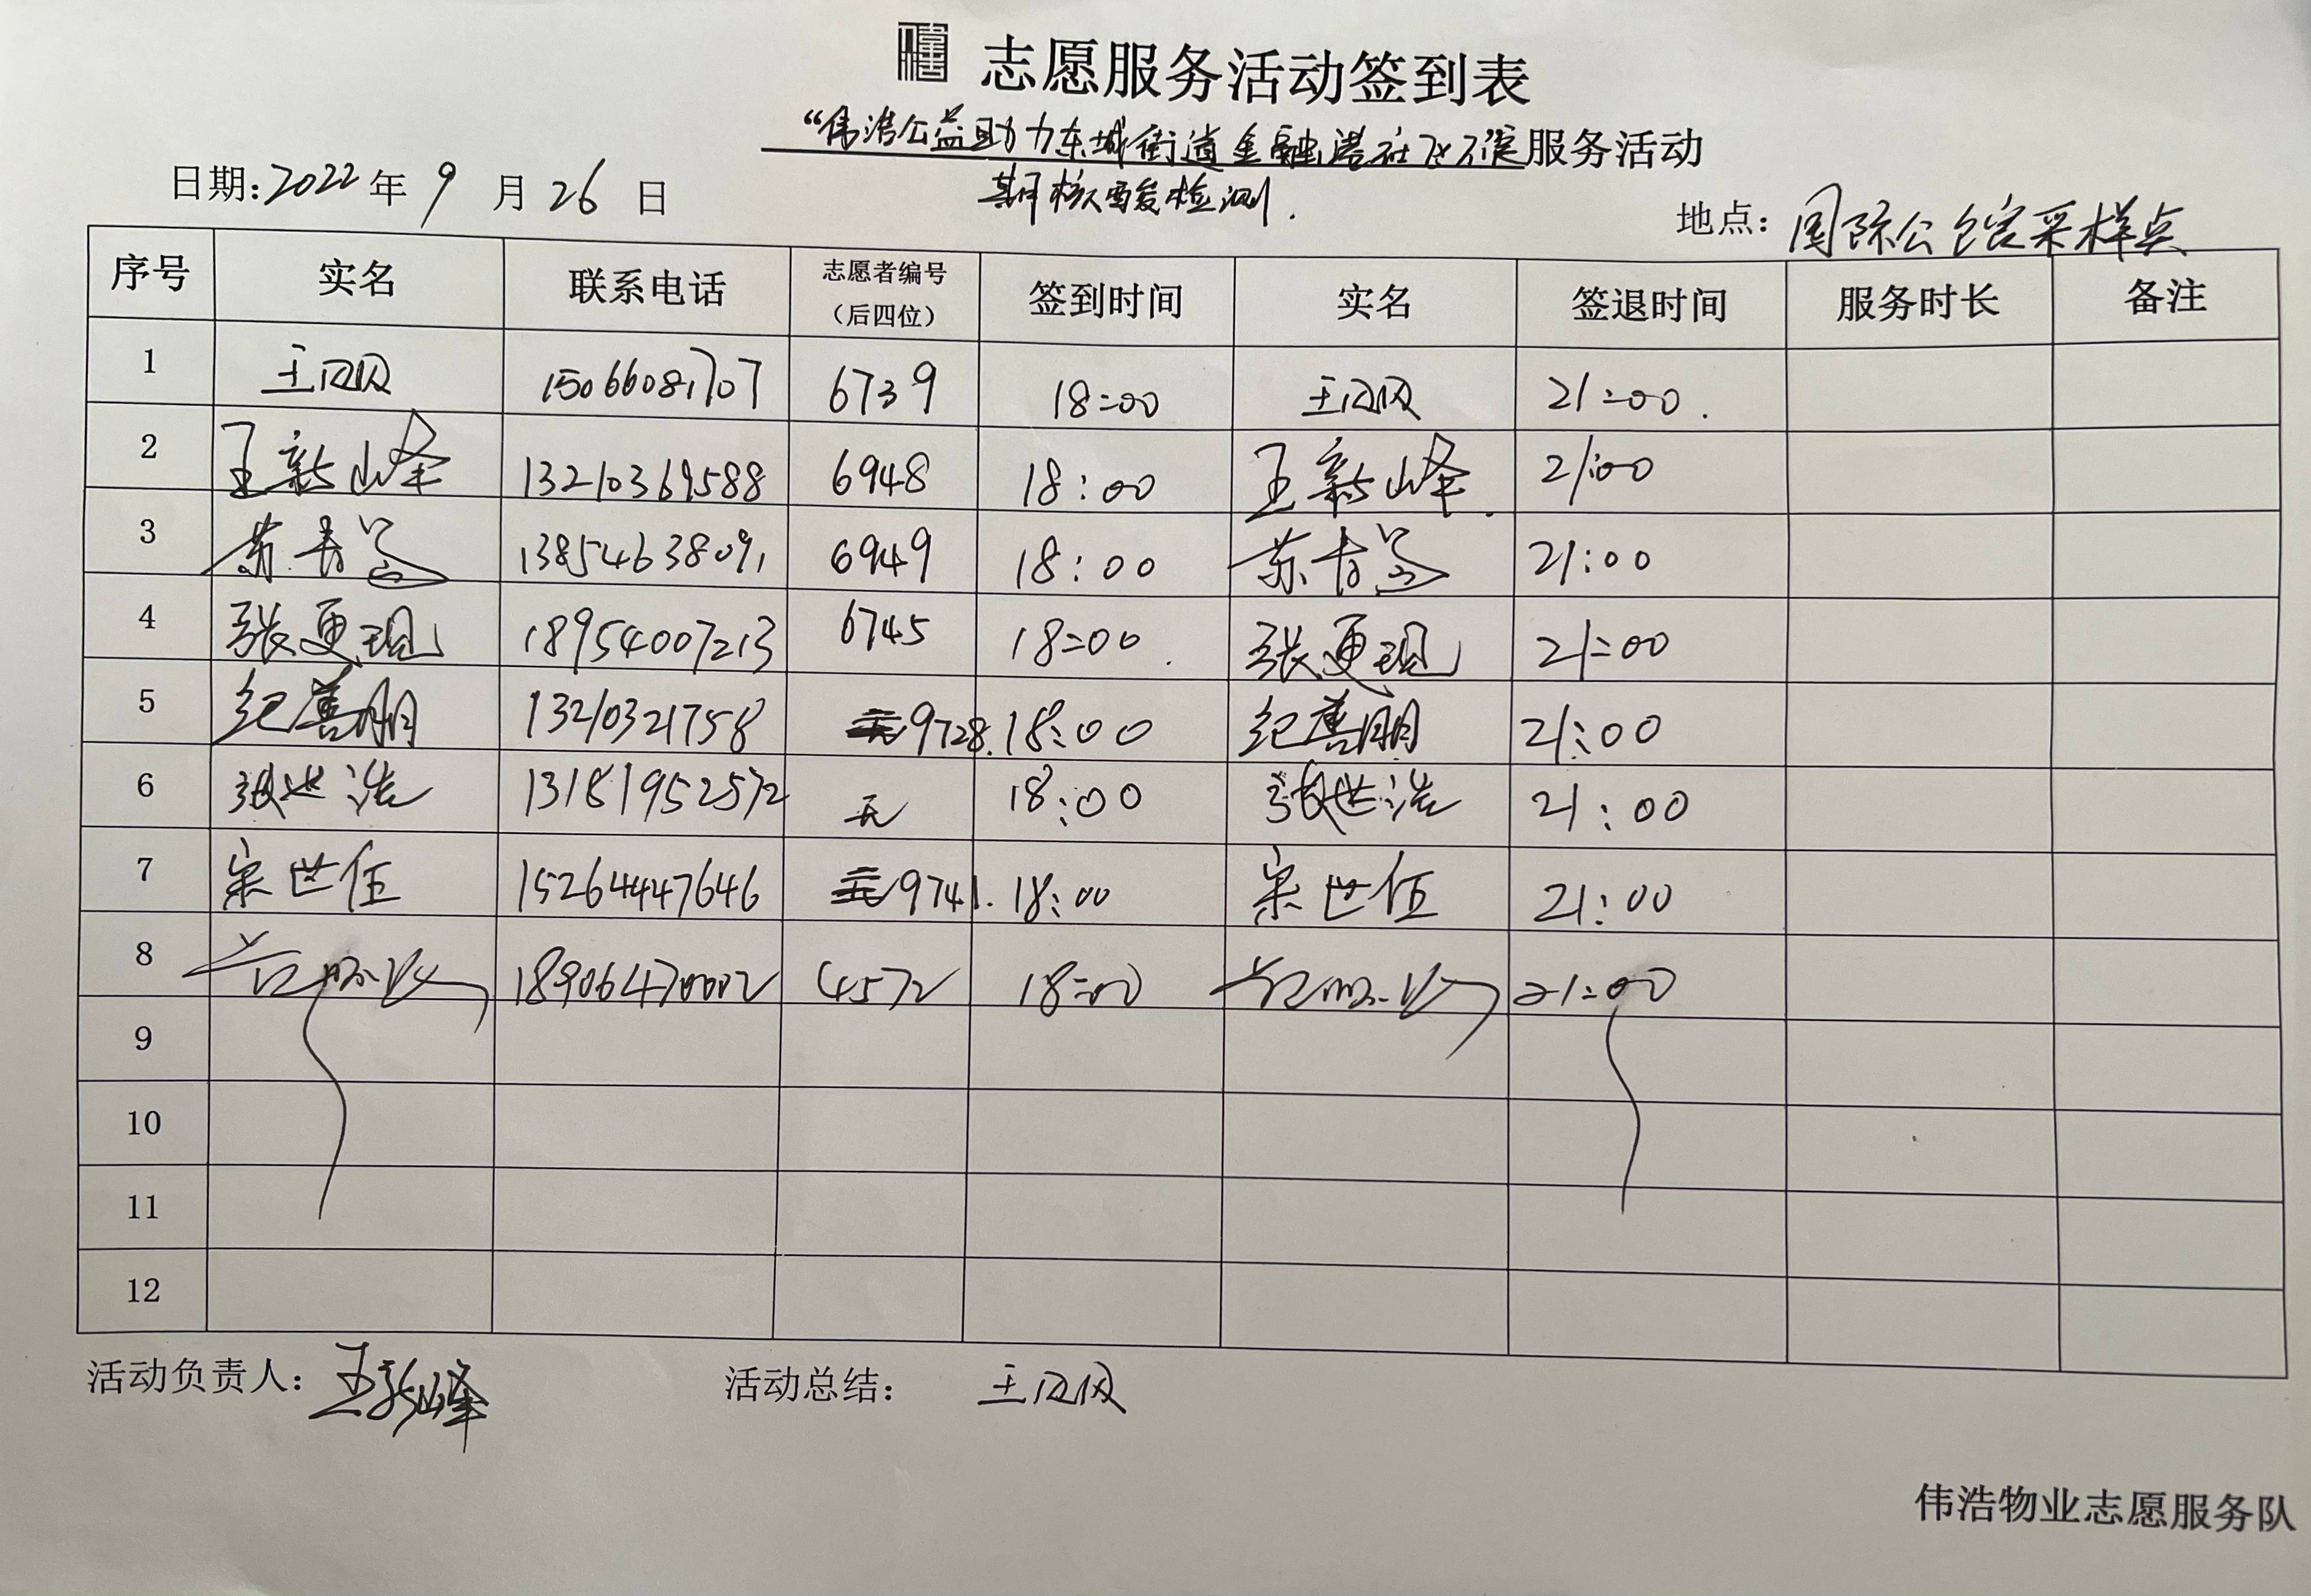 志愿服务活动签到表
"伟浩公益助力东城街道金融港社区 服务活动
期核酸检测.
日期:2022年9月26日
地点:国际公馆采样点
序号 实名 联系电话 志愿者编号（后四位） 签到时间 实名 签退时间 服务时长 备注
1 王 15066081707 6739 18:00 王 21:00.
2 王新峰 13210369588 6948 18:00 王新峰. 21:00
3 苏 13854638091 6949 18:00 苏 21:00
4 张更现 18954007213 6745 18:00. 张更现 21:00
5 纪善朋 13210321758 9728. 18:00 纪善朋 21:00
6 张世浩 13181952572 无 18:00 张世浩 21:00
7 宋世伍 15264447646 9741. 18:00 宋世伍 21:00
8 18906470002 4572 18:00 21:00
9
10
11
12
活动负责人:王新峰 活动总结: 王
伟浩物业志愿服务队